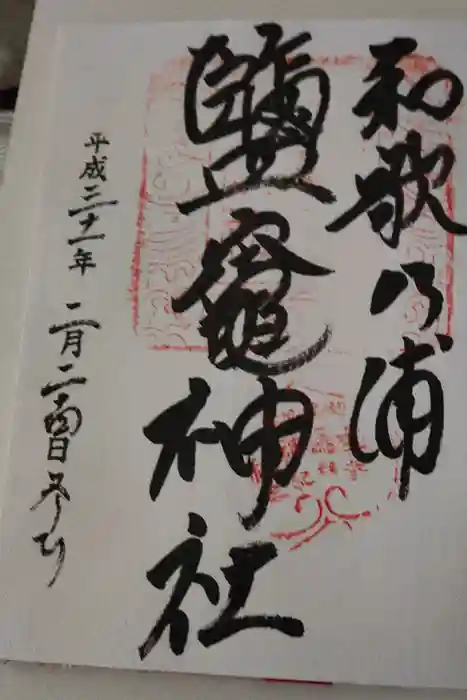 和歌乃浦
鹽竈神社
平成三十一年 二月二十四日